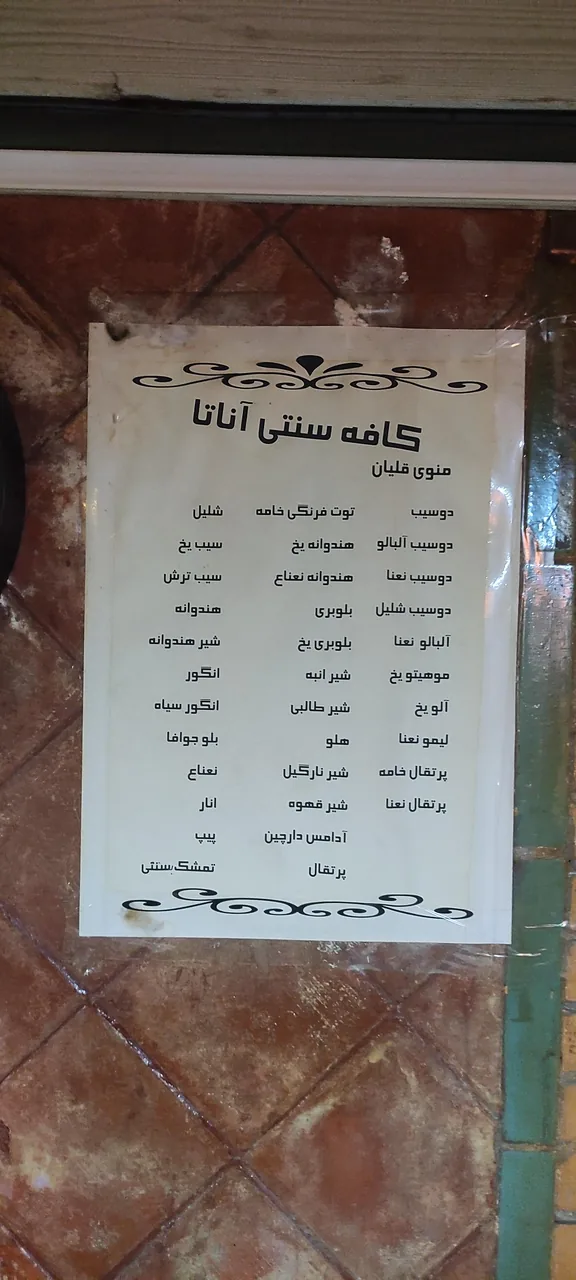 کافه سنتی آناتا
منوی قلیان
دوسیب
دوسیب آلبالو
دوسیب نعنا
دوسیب شلیل
آلبالو نعنا
موهیتو یخ
آلو یخ
لیمو نعنا
پرتقال خامه
پرتقال نعنا
توت فرنگی خامه
هندوانه یخ
هندوانه نعناع
بلوبری
بلوبری یخ
شیر انبه
شیر طالبی
هلو
شیر نارگیل
شیر قهوه
آدامس دارچین
پرتقال
شلیل
سیب یخ
سیب ترش
هندوانه
شیر هندوانه
انگور
انگور سیاه
بلو جوافا
نعناع
انار
پیپ
تمشک بستنی